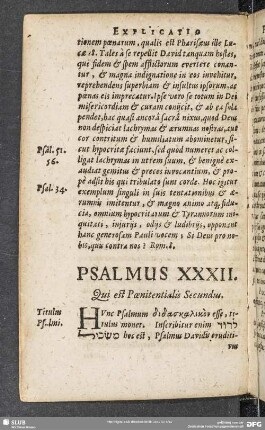 EXPLICATIO
tionem pœnarum, qualis est Pharisæus ille Lu-
cæ 18. Tales à se repellit David tanquam hostes,
qui fidem & spem afflictorum evertere conan-
tur, & magna indignatione in eos invehitur,
reprehendens superbiam & insultus ipsorum, ac
pœnas eis imprecatur. Ipse vero se totum in Dei
misericordiam & curam conijcit, & ab ea sola
pendet, hac quasi ancorâ sacrâ nixus, quod Deus
non despiciat lachrymas & ærumnas nostras, aut
cor contritum & humiliatum abominetur, si-
Psal. 51. cut hypocritæ faciunt, sed quod numeret ac col-
56. ligat lachrymas in utrem suum, & benignè ex-
audiat gemitus & preces invocantium, & pro-
Psal. 34. pè adsit his qui tribulato sunt corde. Hoc igitur
exemplum singuli in suis tentationibus & æ-
rumnis imitentur, & magno animo atq; fidu-
cia, omnium hypocritarum & Tyrannorum ini-
quitatis, injurijs, odijs & ludibrijs, opponant
hanc generosam Pauli vocem, Si Deus pro no-
bis, quis contra nos? Rom. 8.
PSALMUS XXXII.
Qui est Pœnitentialis Secundus.
Titulus HUnc Psalmum διδασκαλικὸν esse, ti-
Psalmi. tulus monet. Inscribitur enim לדוד
משכיל hoc est, Psalmus Davidis eruditi-
vus
SLUB
DFG